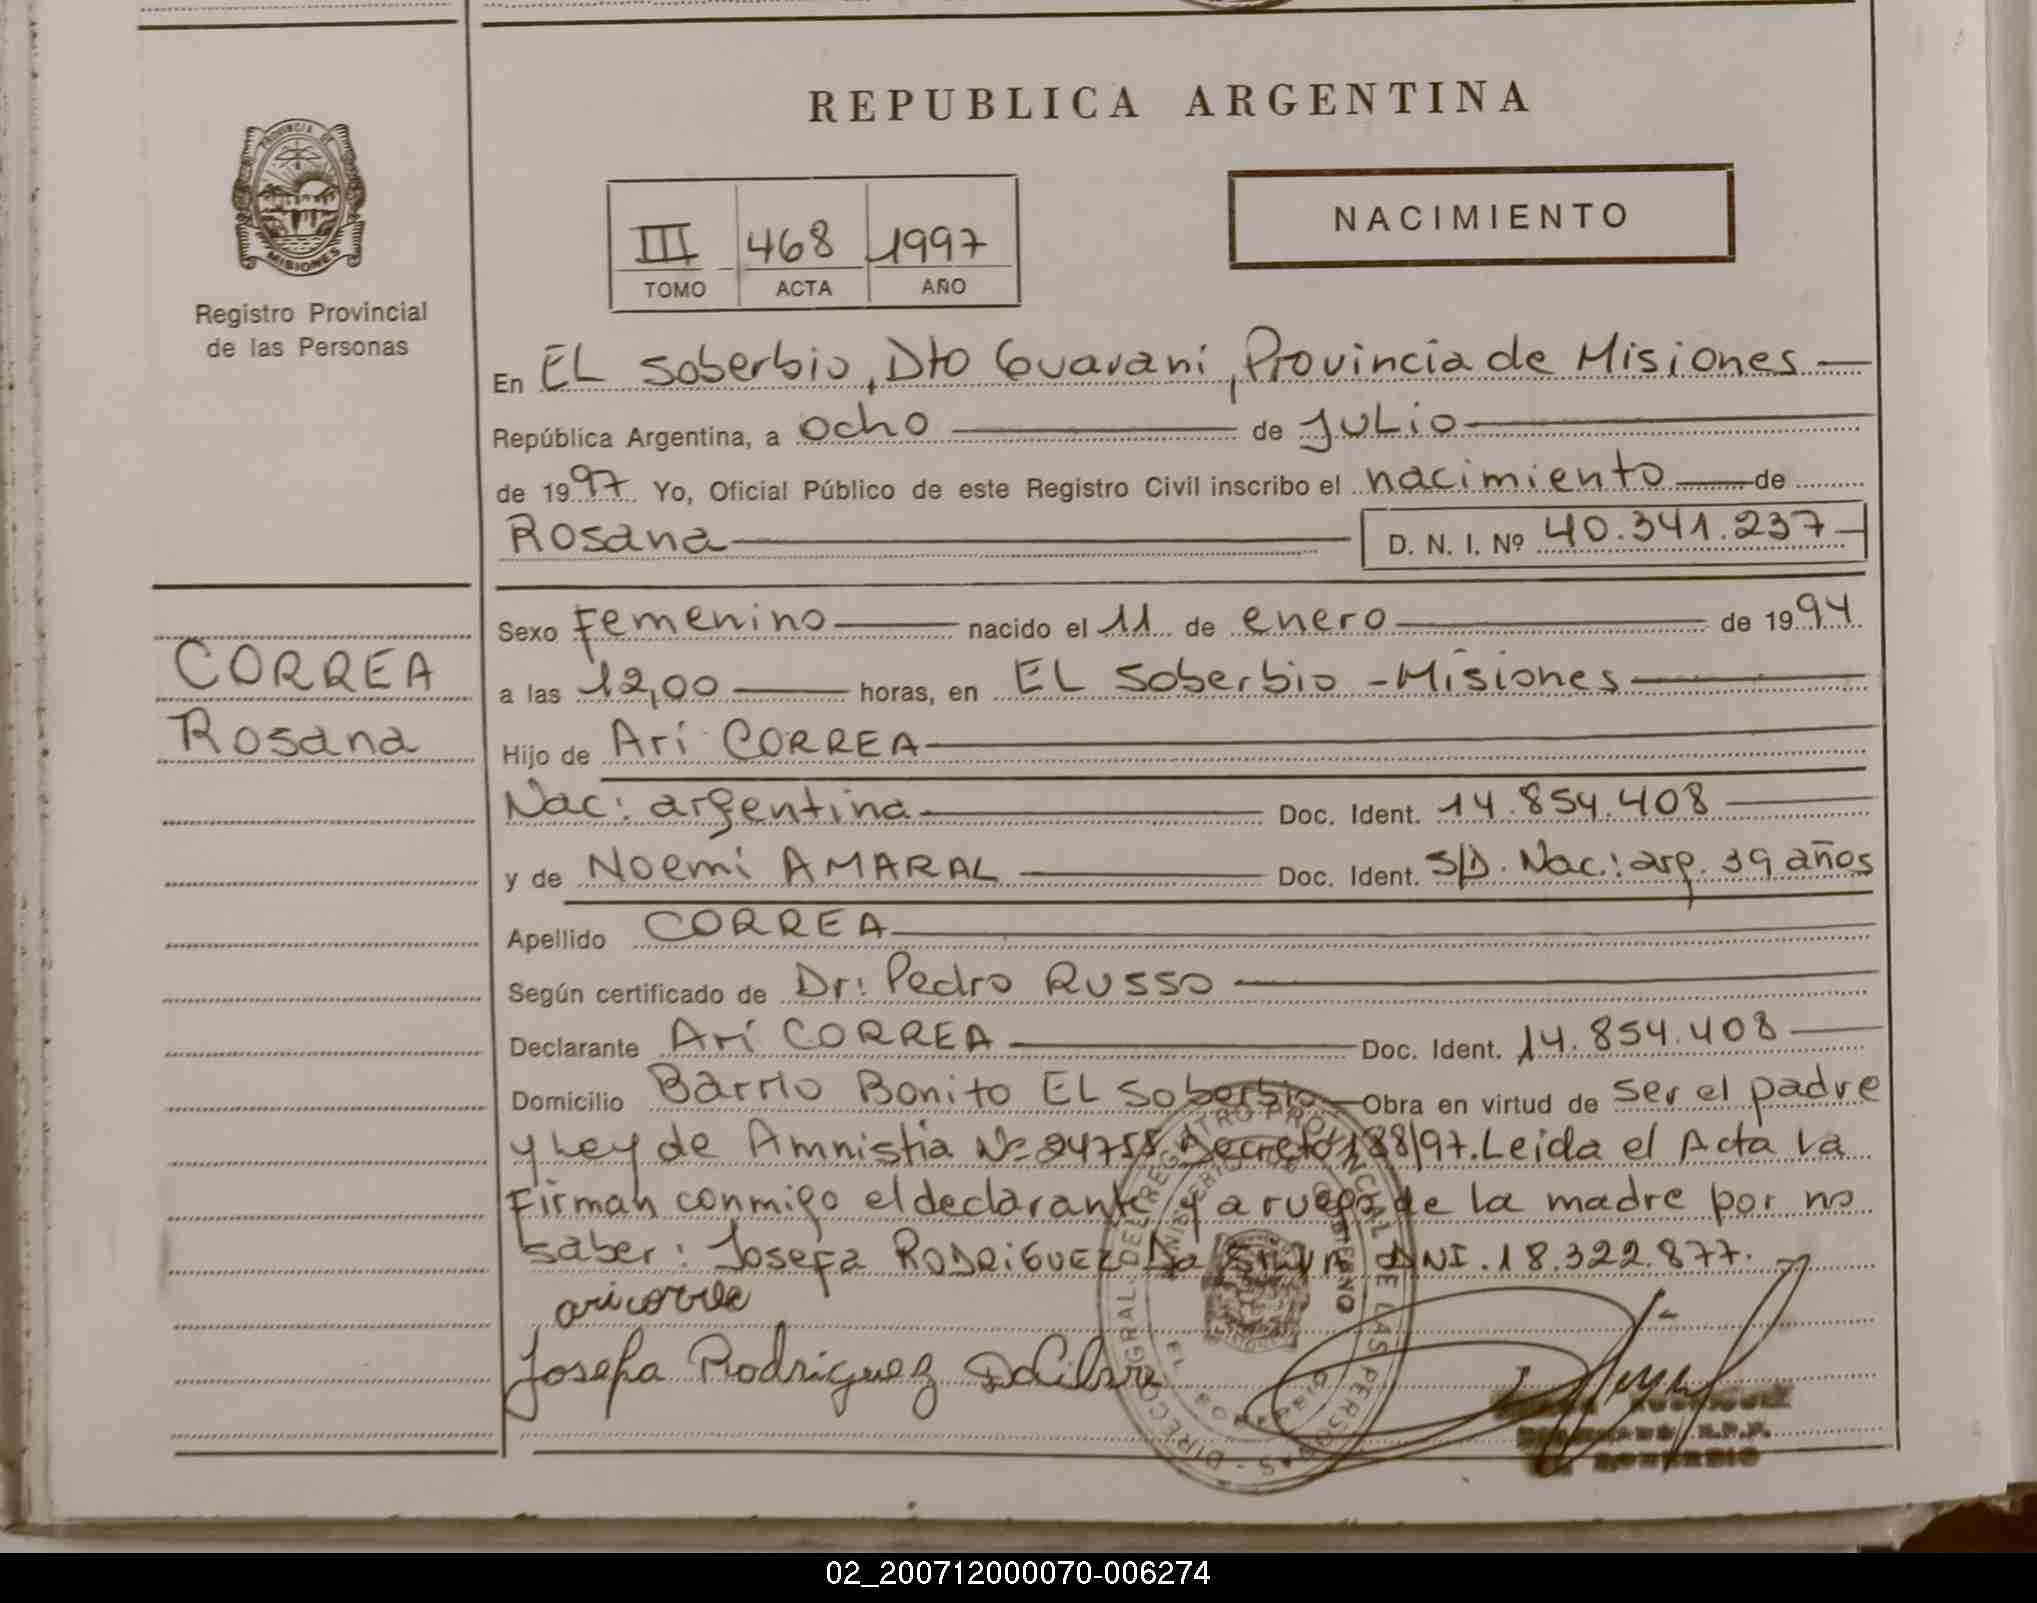 REPUBLICA ARGENTINA
PROVINCIA DE MISIONES
Registro Provincial
de las Personas
NACIMIENTO
III 468 1997
TOMO ACTA AÑO
En EL Soberbio, Dto Guarani, Provincia de Misiones
República Argentina, a ocho de JuLio
de 1997 Yo, Oficial Público de este Registro Civil inscribo el nacimiento de
Rosana D. N. I. Nº 40.341.237
Sexo Femenino nacido el 11 de enero de 1994
CORREA
a las 12,00 horas, en EL Soberbio - Misiones
Rosana
Hijo de Ari CORREA
Nac: argentina Doc. Ident. 14.854.408
y de Noemi AMARAL Doc. Ident. S/D. Nac: arg. 39 años
Apellido CORREA
Según certificado de Dr: Pedro Russo
Declarante Ari CORREA Doc. Ident. 14.854.408
Domicilio Barrio Bonito EL Soberbio Obra en virtud de ser el padre
y Ley de Amnistia Nº 24755 Decreto 188/97. Leida el Acta la
Firman conmigo el declarante y a ruego de la madre por no
saber: Josefa RODRIGUEZ Da SILVA DNI. 18.322.877.
ari correa
Josefa Rodriguez DaCilva
DIRECC. GRAL. DEL REGISTRO PROVINCIAL DE LAS PERSONAS
02_200712000070-006274